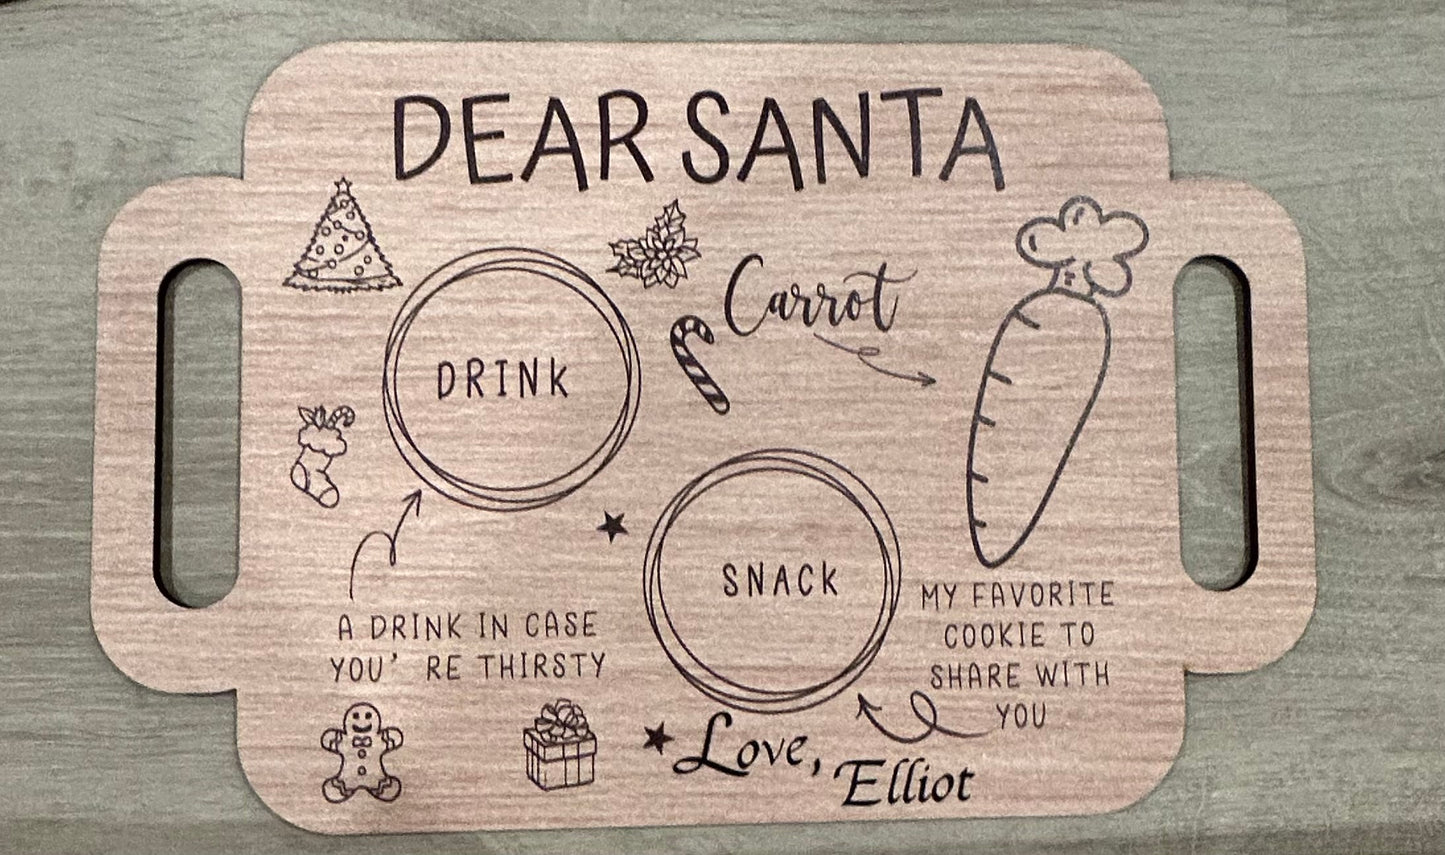 DEAR SANTA
Carrot
DRINK
SNACK
A DRINK IN CASE
YOU' RE THIRSTY
MY FAVORITE
COOKIE TO
SHARE WITH
YOU
Love,
Elliot